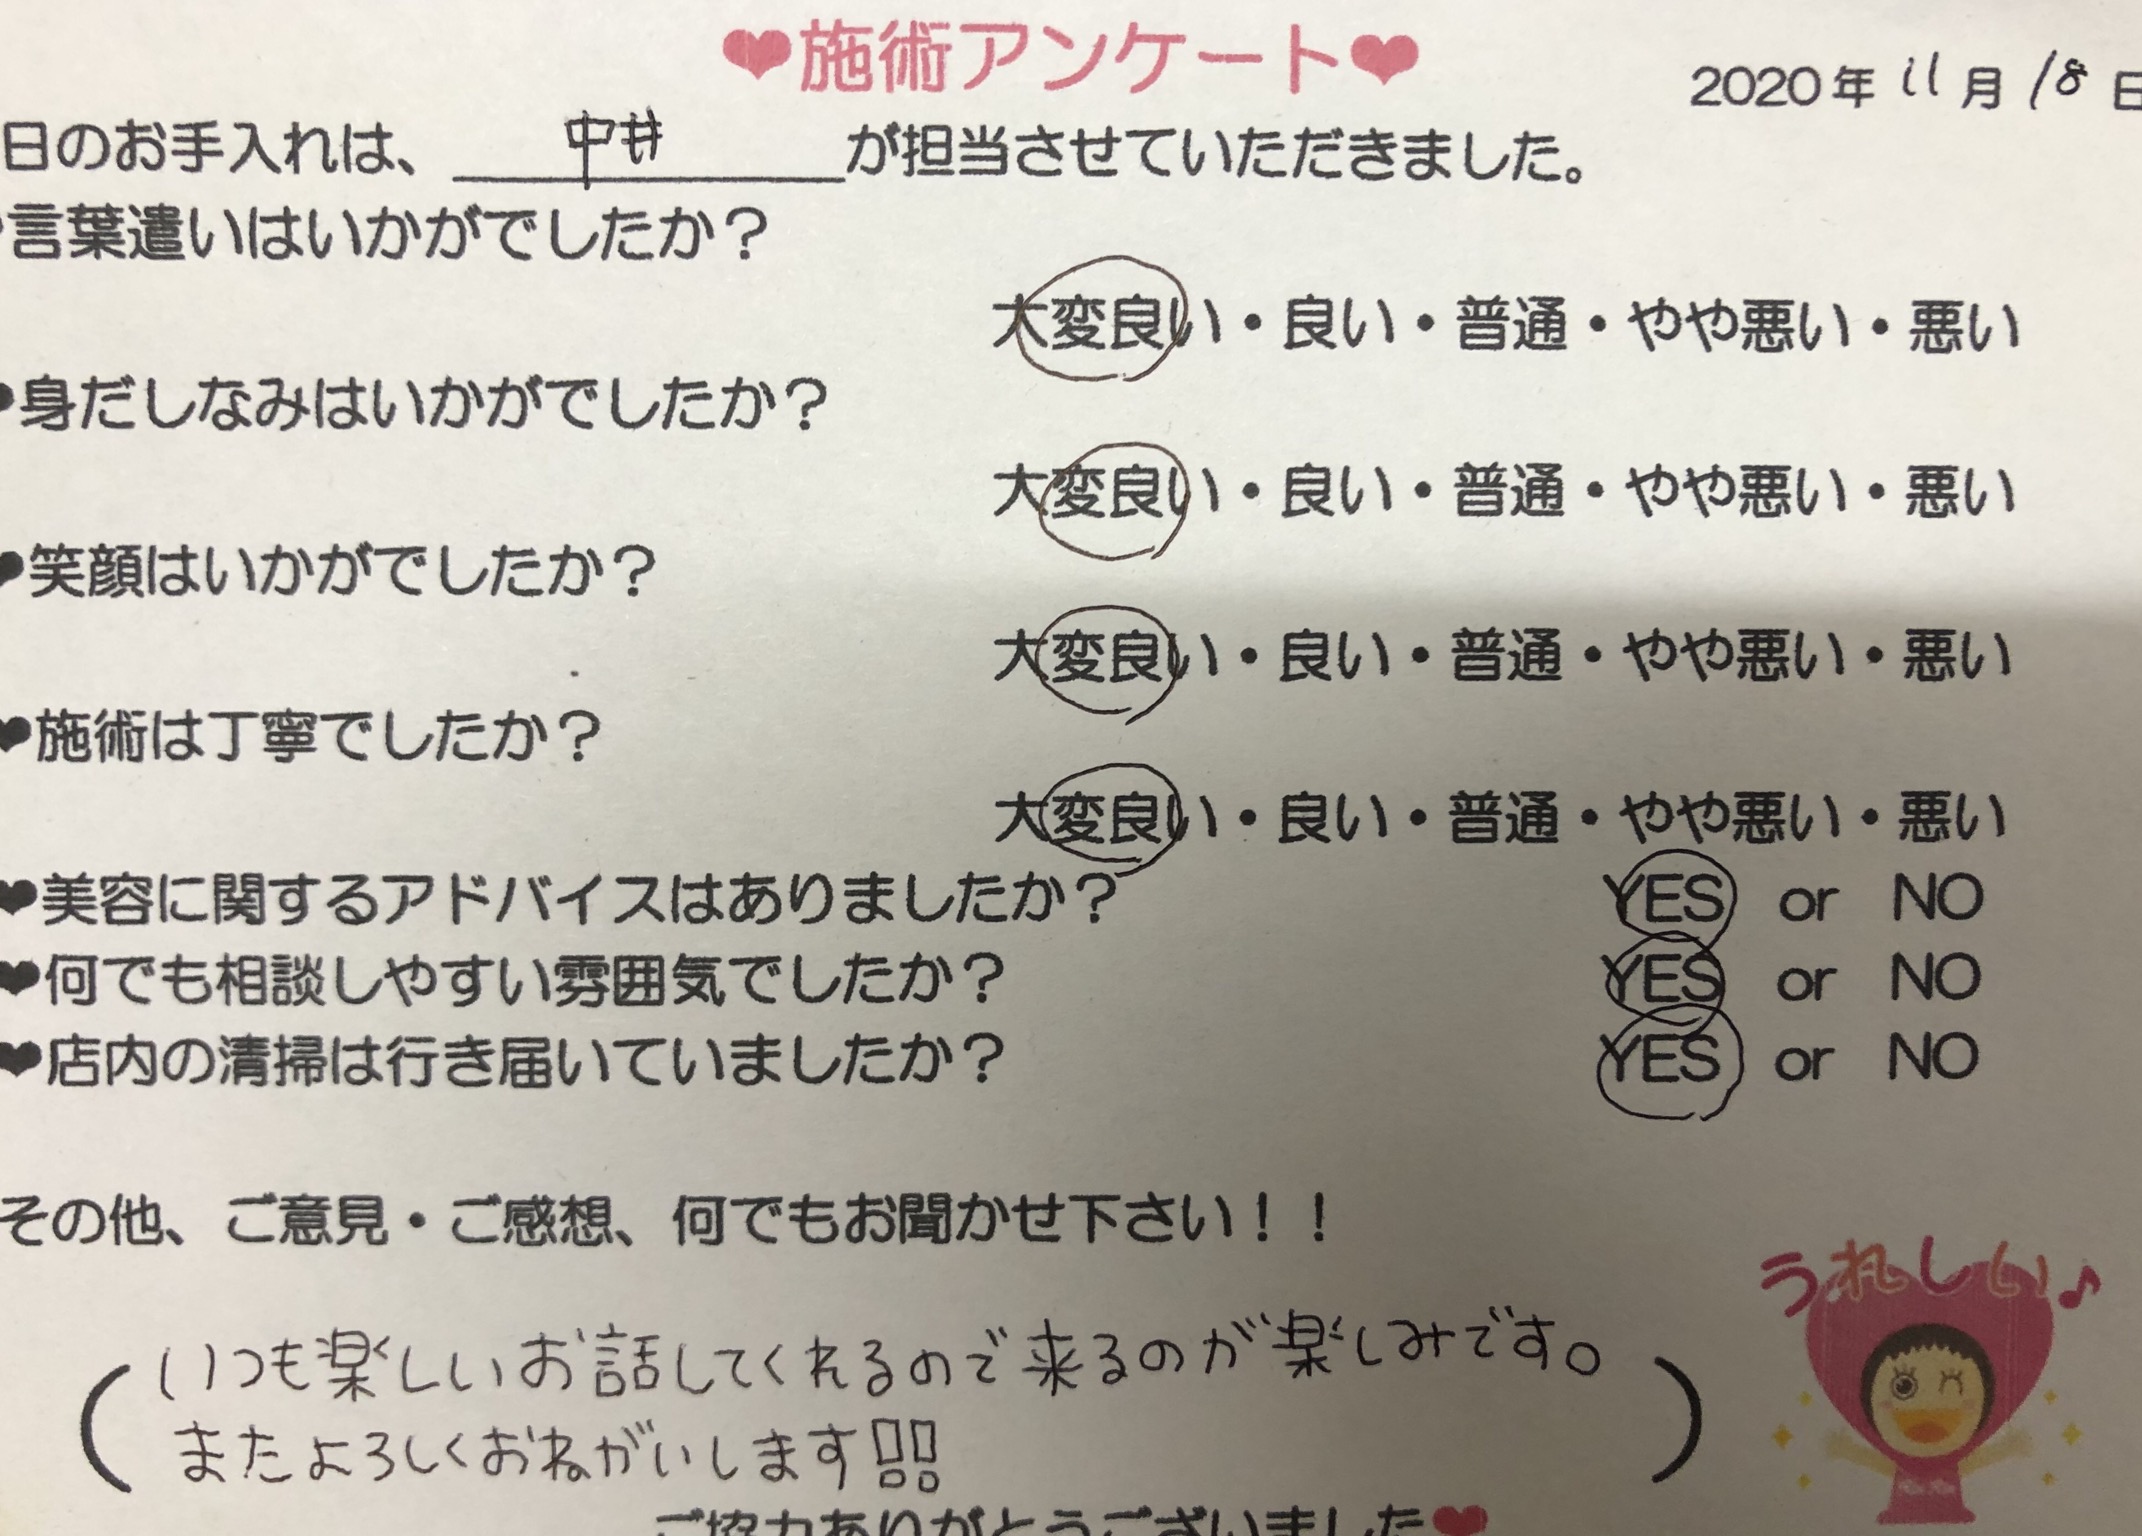 ❤施術アンケート❤
2020年 11月 18日
日のお手入れは、 中井 が担当させていただきました。
言葉遣いはいかがでしたか？
大変良い・良い・普通・やや悪い・悪い
❤身だしなみはいかがでしたか？
大変良い・良い・普通・やや悪い・悪い
❤笑顔はいかがでしたか？
大変良い・良い・普通・やや悪い・悪い
❤施術は丁寧でしたか？
大変良い・良い・普通・やや悪い・悪い
❤美容に関するアドバイスはありましたか？ YES or NO
❤何でも相談しやすい雰囲気でしたか？ YES or NO
❤店内の清掃は行き届いていましたか？ YES or NO
その他、ご意見・ご感想、何でもお聞かせ下さい！！
うれしい♪
(いつも楽しいお話してくれるので来るのが楽しみです。
またよろしくおねがいします!!)
ご協力ありがとうございました❤